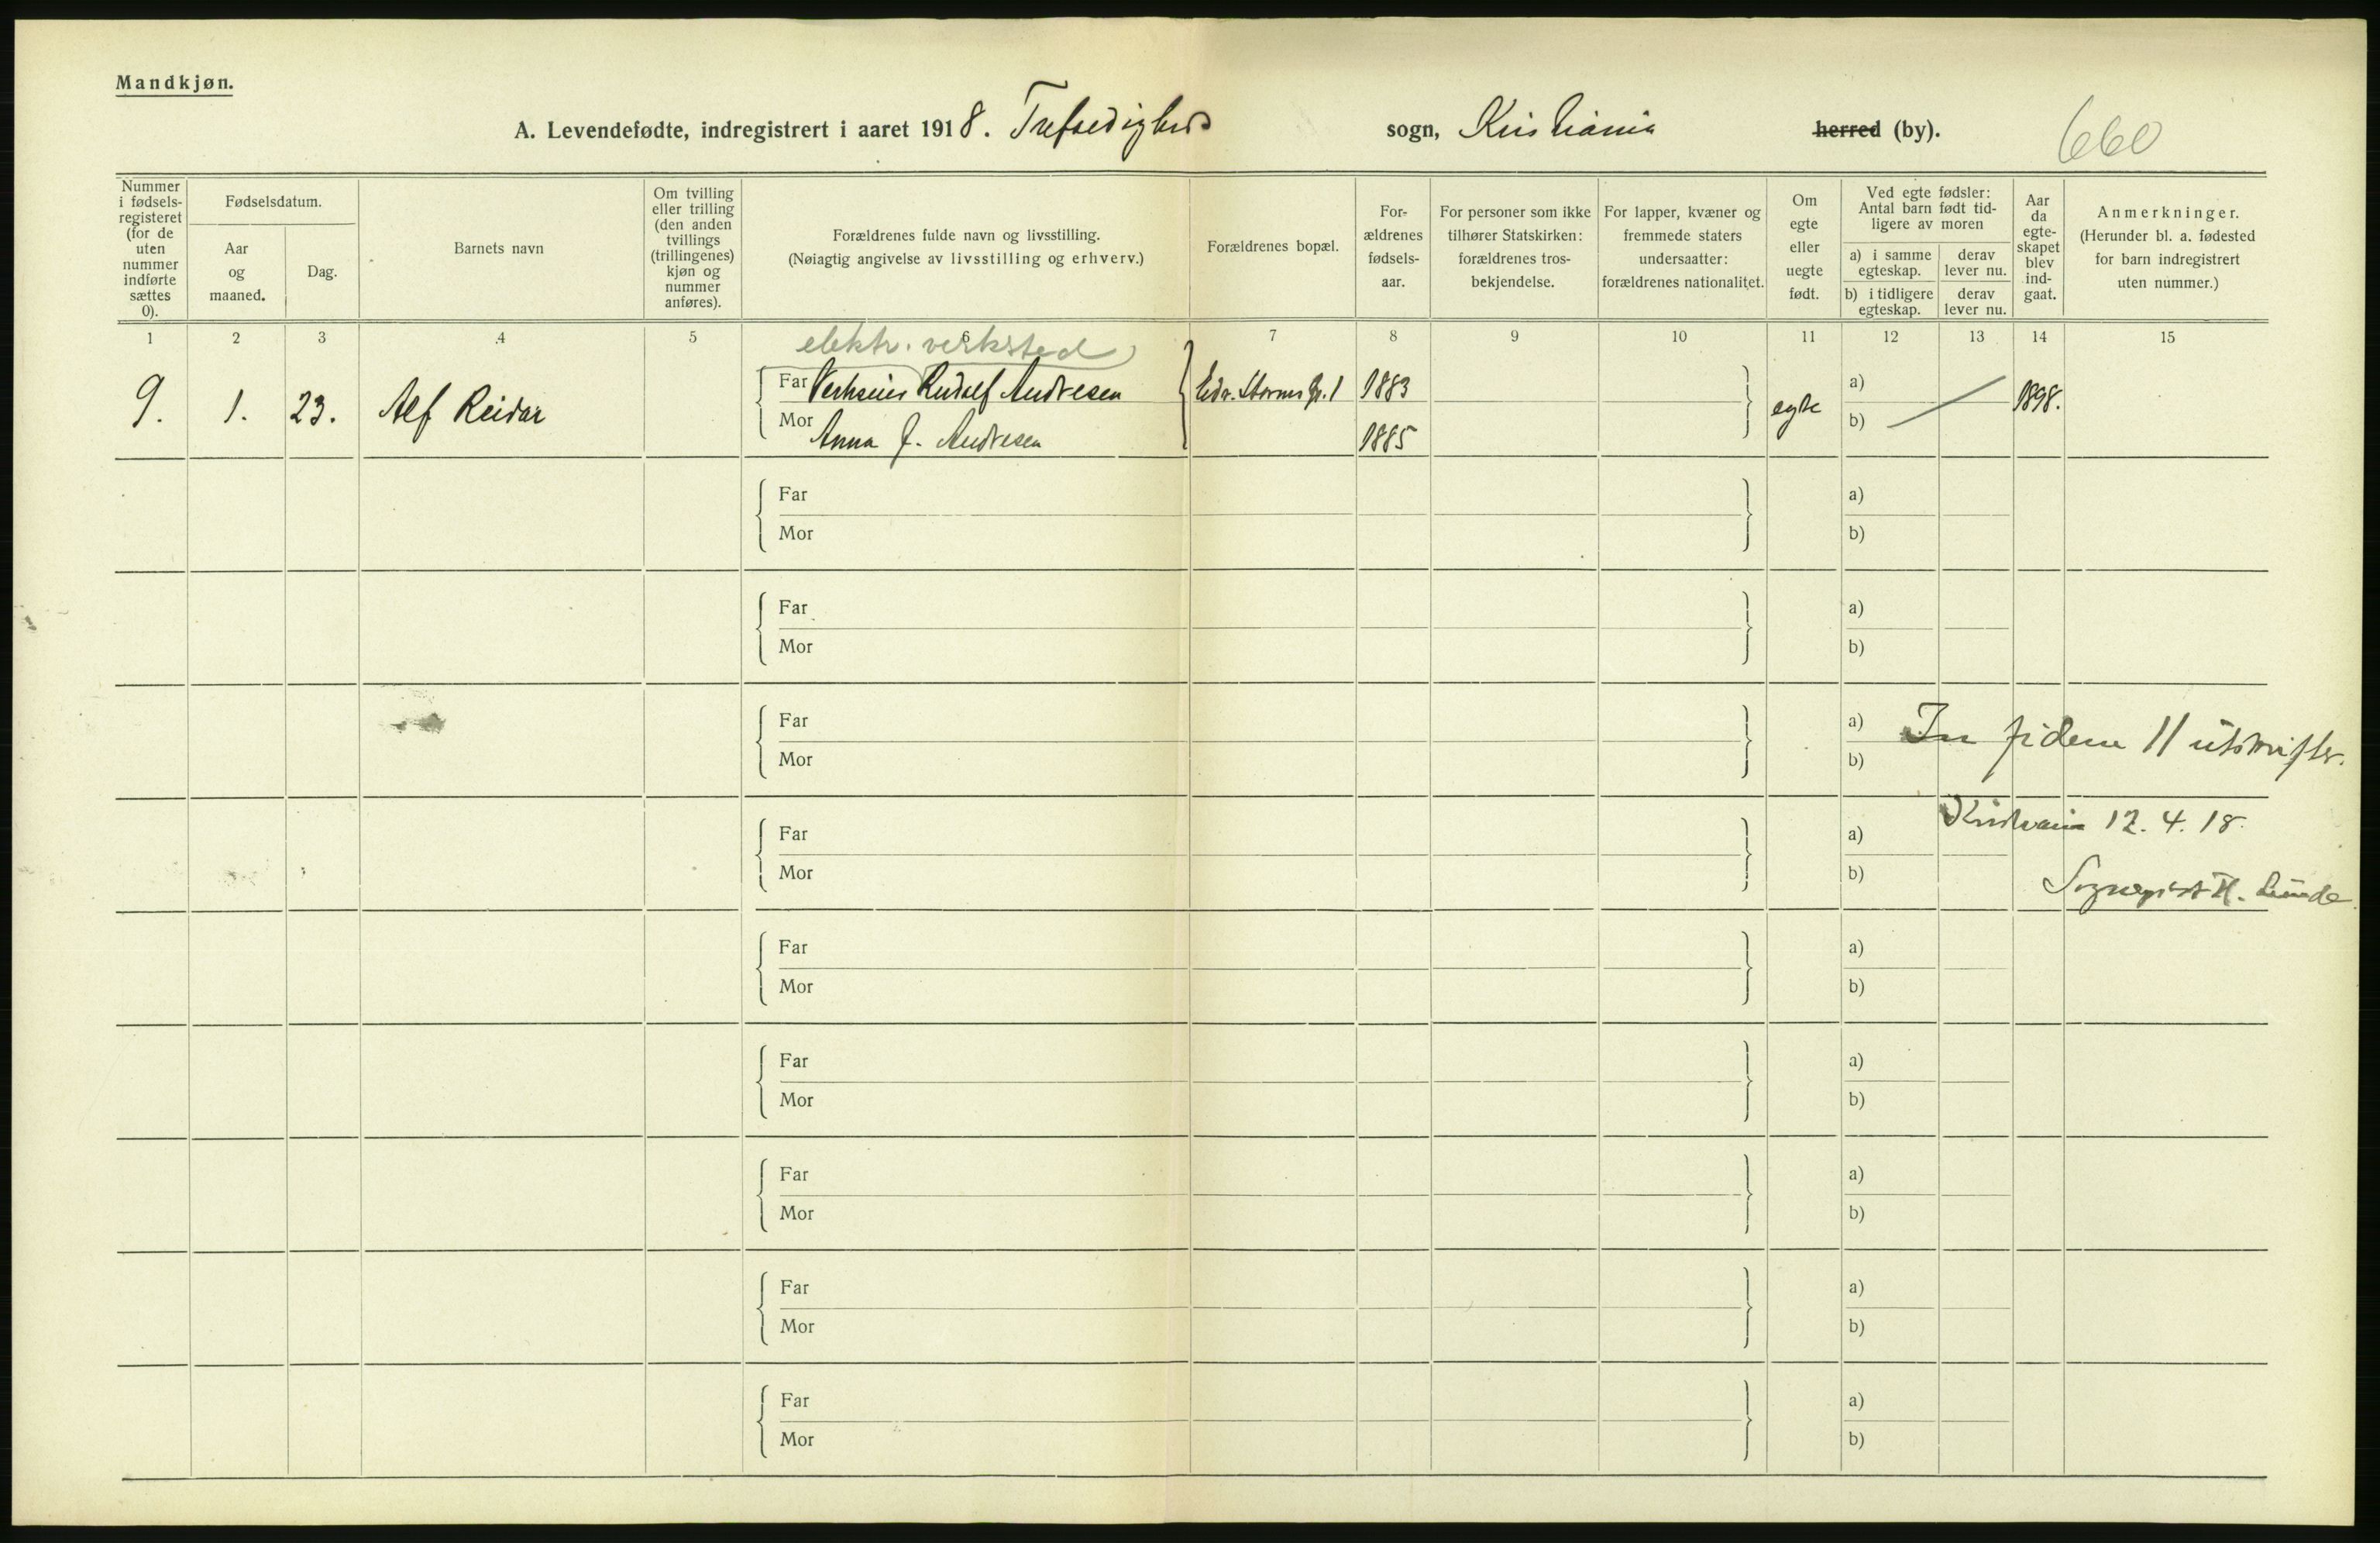 Mandkjøn.
A. Levendefødte, indregistrert i aaret 1918. Trefoldigheds sogn, Kristiania herred (by). 660
Nummer i fødsels-registeret (for de uten nummer indførte sættes 0).
Fødselsdatum.
Aar og maaned.
Dag.
Barnets navn
Om tvilling eller trilling (den anden tvillings (trillingenes) kjøn og nummer anføres).
Forældrenes fulde navn og livsstilling.
(Nøiagtig angivelse av livsstilling og erhverv.)
Forældrenes bopæl.
For-ældrenes fødsels-aar.
For personer som ikke tilhører Statskirken: forældrenes tros-bekjendelse.
For lapper, kvæner og fremmede staters undersaatter: forældrenes nationalitet.
Om egte eller uegte født.
Ved egte fødsler: Antal barn født tid-ligere av moren
a) i samme egteskap.
derav lever nu.
b) i tidligere egteskap.
derav lever nu.
Aar da egte-skapet blev ind-gaat.
Anmerkninger.
(Herunder bl. a. fødested for barn indregistrert uten nummer.)
1 2 3 4 5 6 7 8 9 10 11 12 13 14 15
elektr. verksted
9. 1. 23. Alf Reidar Far Verkseier Rudolf Andresen Edv. Storms gt. 1 1883 egte a) 1898.
Mor Anna J. Andresen 1885 b)
Far a)
Mor b)
Far a)
Mor b)
Far a) In fidem 11 utskrifter.
Mor b)
Kristiania 12. 4. 18.
Far a)
Mor b) H. Lunde
Far a)
Mor b)
Far a)
Mor b)
Far a)
Mor b)
Far a)
Mor b)
Far a)
Mor b)